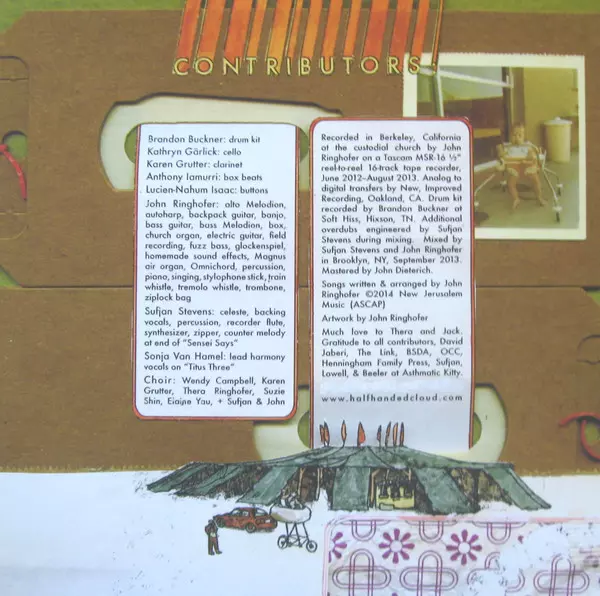 CONTRIBUTORS
Brandon Buckner: drum kit
Kathryn Gärlick: cello
Karen Grutter: clarinet
Anthony Iamurri: box beats
Lucien-Nahum Isaac: buttons
John Ringhofer: alto Melodion,
autoharp, backpack guitar, banjo,
bass guitar, bass Melodion, box,
church organ, electric guitar, field
recording, fuzz bass, glockenspiel,
homemade sound effects, Magnus
air organ, Omnichord, percussion,
piano, singing, stylophone stick, train
whistle, tremolo whistle, trombone,
ziplock bag
Sufjan Stevens: celeste, backing
vocals, percussion, recorder flute,
synthesizer, zipper, counter melody
at end of "Sensei Says"
Sonja Van Hamel: lead harmony
vocals on "Titus Three"
Choir: Wendy Campbell, Karen
Grutter, Thera Ringhofer, Suzie
Shin, Elaine Yau, + Sufjan & John
Recorded in Berkeley, California
at the custodial church by John
Ringhofer on a Tascam MSR-16 ½"
reel-to-reel 16-track tape recorder,
June 2012–August 2013. Analog to
digital transfers by New, Improved
Recording, Oakland, CA. Drum kit
recorded by Brandon Buckner at
Soft Hiss, Hixson, TN. Additional
overdubs engineered by Sufjan
Stevens during mixing. Mixed by
Sufjan Stevens and John Ringhofer
in Brooklyn, NY, September 2013.
Mastered by John Dieterich.
Songs written & arranged by John
Ringhofer ©2014 New Jerusalem
Music (ASCAP)
Artwork by John Ringhofer
Much love to Thera and Jack.
Gratitude to all contributors, David
Jaberi, The Link, BSDA, OCC,
Henningham Family Press, Sufjan,
Lowell, & Beeler at Asthmatic Kitty.
www.halfhandedcloud.com